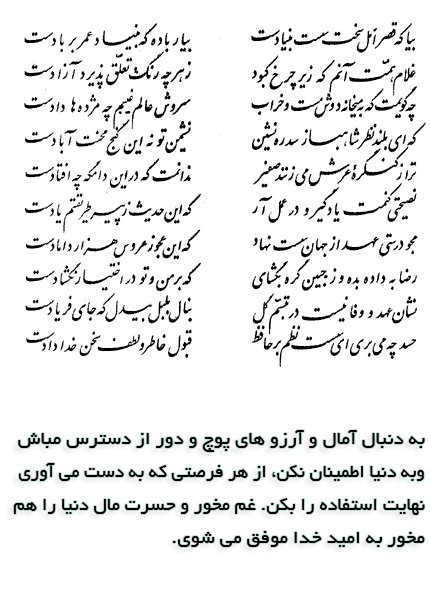 بیا که قصر امل سخت سست بنیادست بیار باده که بنیاد عمر بر بادست
غلام همت آنم که زیر چرخ کبود ز هر چه رنگ تعلق پذیرد آزادست
چه گویمت که به میخانه دوش مست و خراب سروش عالم غیبم چه مژده ها دادست
که ای بلند نظر شاهباز سدره نشین نشیمن تو نه این کنج محنت آبادست
ترا ز کنگره عرش می زنند صفیر ندانمت که در این دامگه چه افتادست
نصیحتی کنمت یاد گیر و در عمل آر که این حدیث ز پیر طریقتم یادست
مجو درستی عهد از جهان سست نهاد که این عجوز عروس هزار دامادست
رضا به داده بده وز جبین گره بگشای که بر من و تو در اختیار نگشادست
نشان عهد و وفا نیست در تبسم گل بنال بلبل بیدل که جای فریادست
حسد چه می بری ای سست نظم بر حافظ قبول خاطر و لطف سخن خدادادست
به دنبال آمال و آرزو های پوچ و دور از دسترس مباش
وبه دنیا اطمینان نکن، از هر فرصتی که به دست می آوری
نهایت استفاده را بکن. غم مخور و حسرت مال دنیا را هم
مخور به امید خدا موفق می شوی.